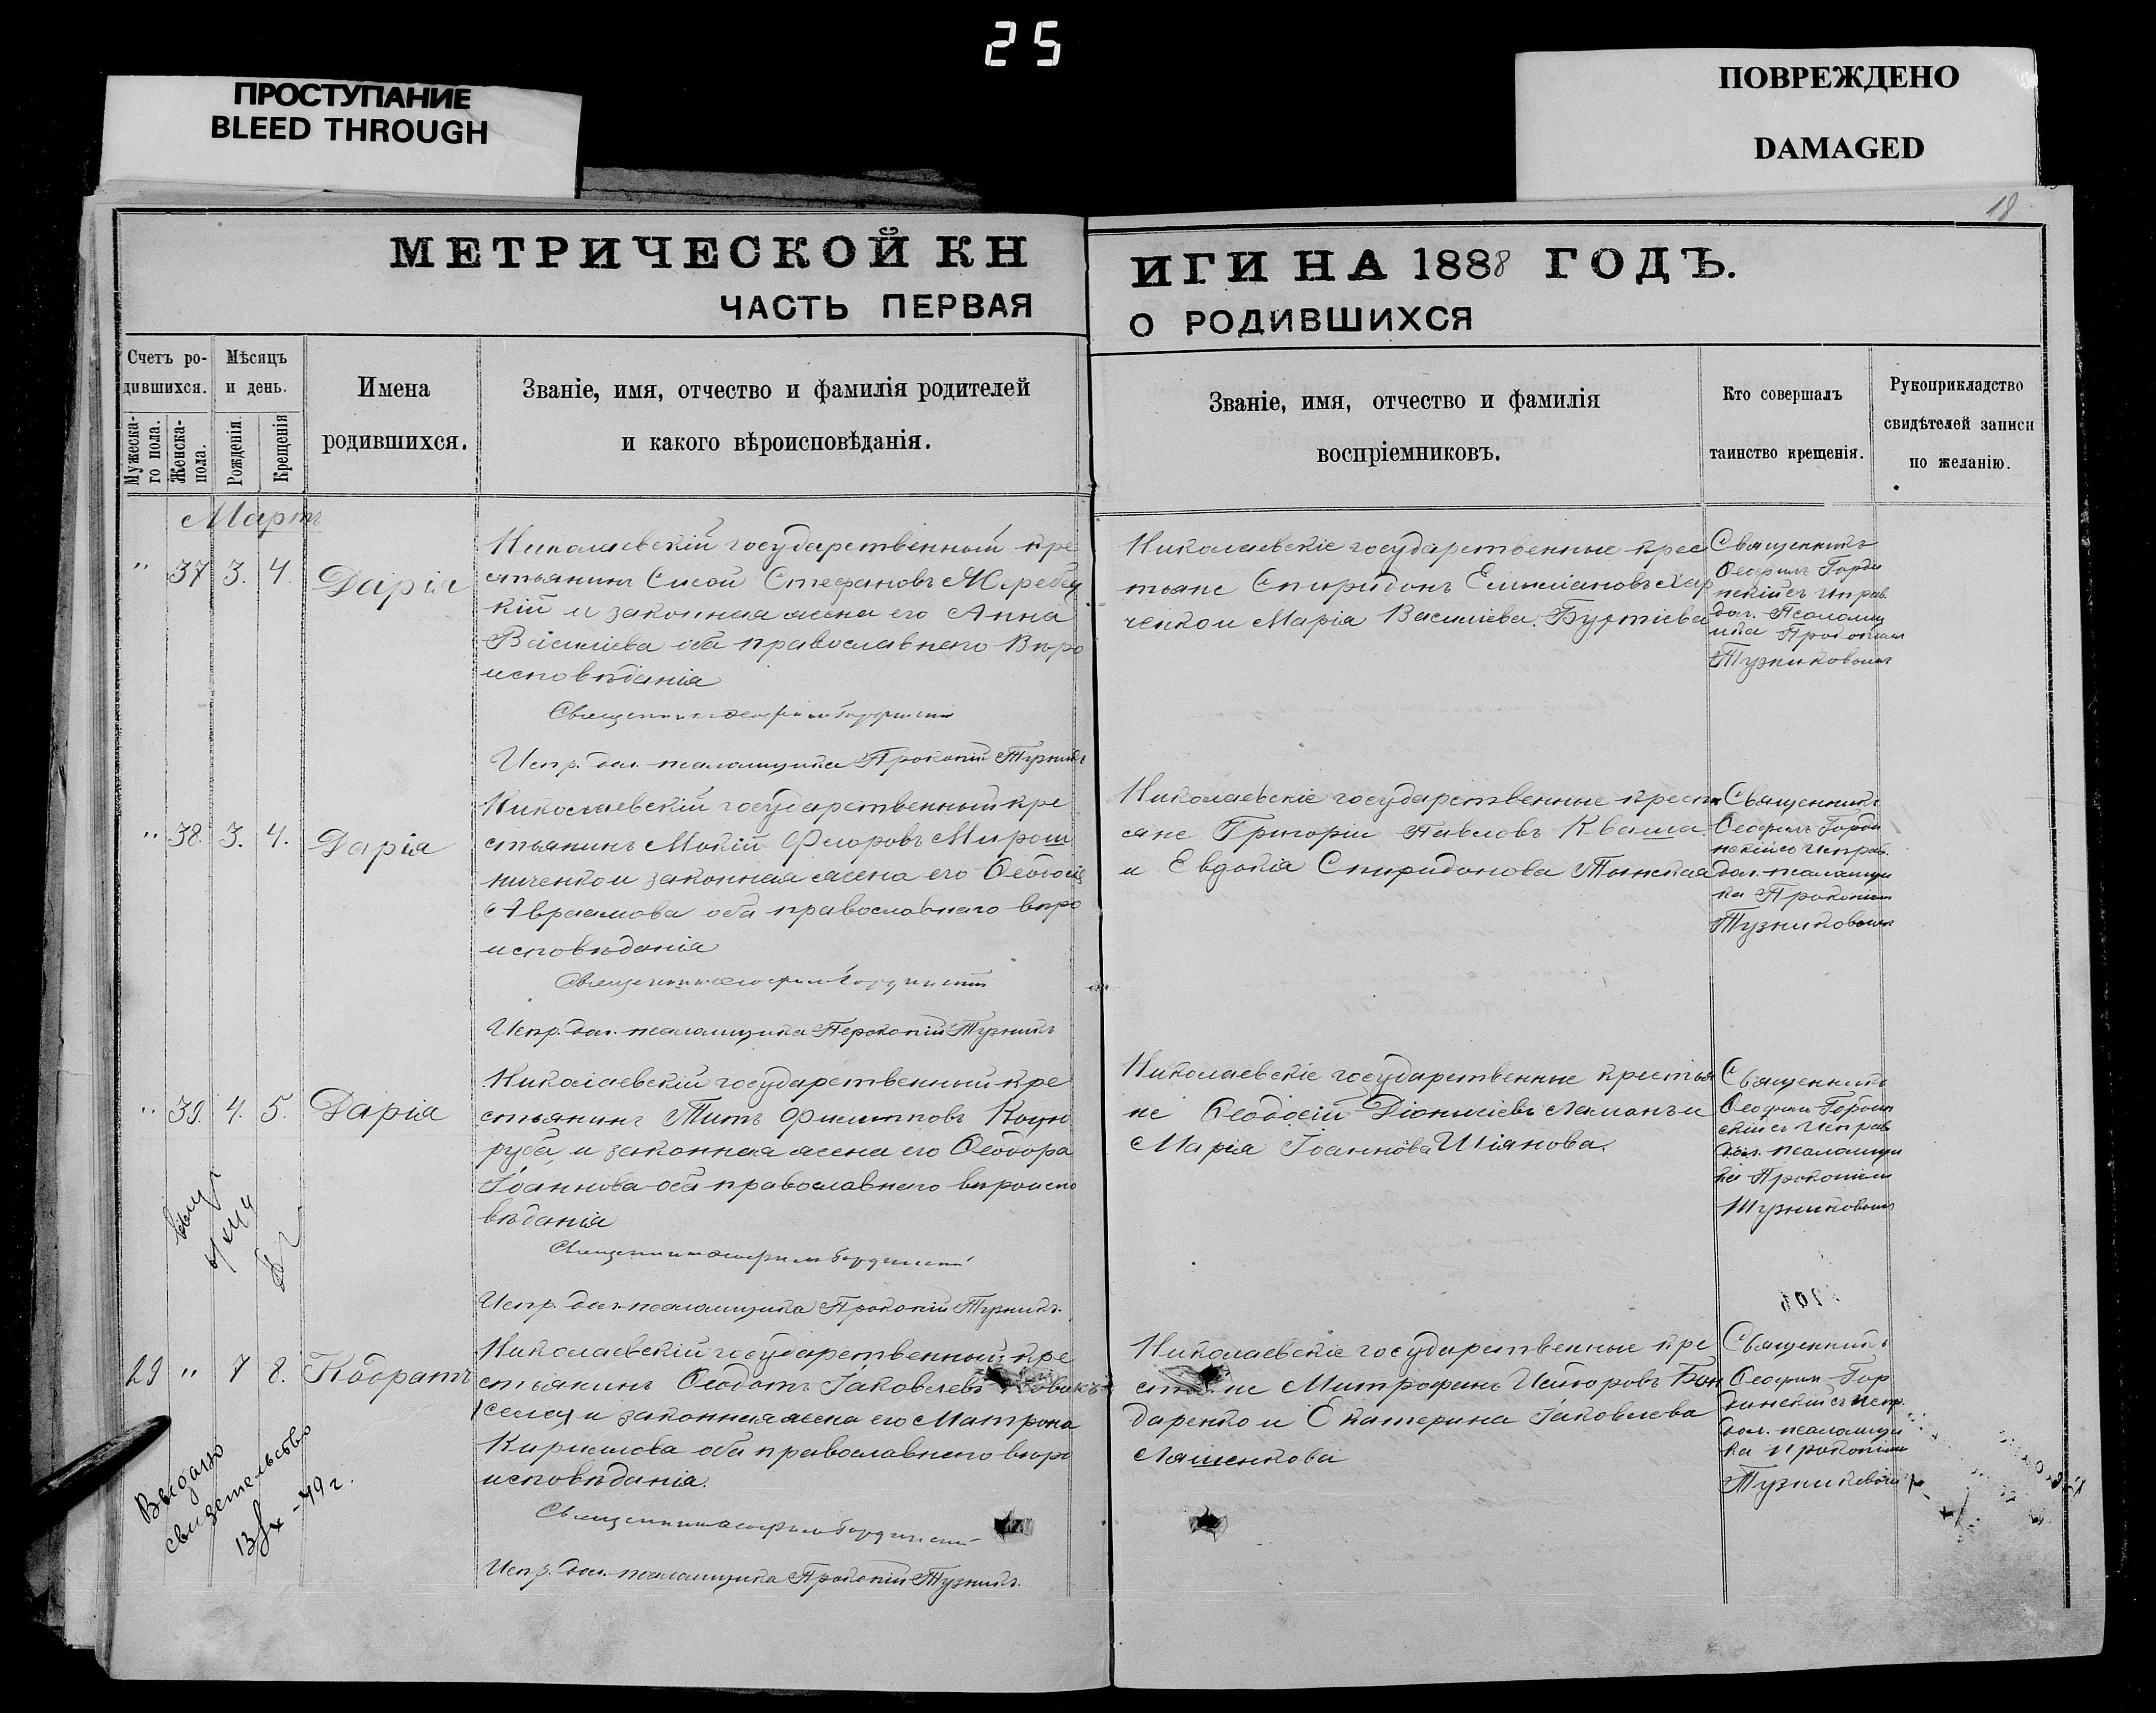 25
ПРОСТУПАНИЕ
BLEED THROUGH
ПОВРЕЖДЕНО
DAMAGED
18
МЕТРИЧЕСКОЙ КН
ИГИ НА 1888 ГОДЪ.
ЧАСТЬ ПЕРВАЯ
О РОДИВШИХСЯ
Счетъ ро-
дившихся.
Мужеска-
го пола.
Женска-
пола.
Мѣсяцъ
и день.
Рожденія.
Крещенія
Имена
родившихся.
Званіе, имя, отчество и фамилія родителей
и какого вѣроисповѣданія.
Званіе, имя, отчество и фамилія
воспріемниковъ.
Кто совершалъ
таинство крещенія.
Рукоприкладство
свидѣтелей записи
по желанію.
Мартъ
" 37 3. 4. Дарія
Николаевскій государственный кре
стьянинъ Сисой Стефановъ
кій и законная жена его Анна
Василіева оба православнаго вѣро
исповѣданія
Священникъ
Испр. дол. псаломщика Прокопій Тузникъ
Николаевскіе государственные крес
тьяне Спиридонъ Емиліановъ Хар
ченко и Марія Василіева
Священникъ
Ѳеофилъ Горди
нскій съ исправ.
дол. Псаломщ
ика Прокопіем
Тузниковымъ
" 38. 3. 4. Дарія
Николаевскій государственный кре
стьянинъ Мокій Ѳеодоровъ Мирош
ниченко и законная жена его Ѳеодосія
Авраамова оба православнаго вѣро
исповѣданія
Священникъ
Испр. дол. псаломщика Прокопій Тузникъ
Николаевскіе государственные крест
яне Григорій Павловъ Кваша
и Евдокія Спиридонова
Священникъ
Ѳеофилъ Горди
нскій съ исправ.
дол. псаломщи
ка Прокопіем
Тузниковымъ
" 39. 4. 5. Дарія
Николаевскій государственный кре
стьянинъ Титъ Филипповъ Коцю
руба и законная жена его Ѳеодора
Іоаннова оба православнаго вѣроиспо
вѣданія
Священникъ
Испр. дол. псаломщика Прокопій Тузникъ.
Николаевскіе государственные крестья
не Ѳеодосій Діонисіевъ и
Марія Іоаннова
Священникъ
Ѳеофилъ Гордин
скій съ исправ
дол. псаломщи
ка Прокопіем
Тузниковымъ
29 " 7 8. Кодратъ
Николаевскій государственный кре
стьянинъ Ѳеодотъ Іаковлевъ
и законная жена его Матрона
Кириллова оба православнаго вѣро
исповѣданія.
Священникъ
Испр. дол. псаломщика Прокопій Тузникъ.
Николаевскіе государственные кре
не Митрофанъ Бон
даренко и Екатерина Іаковлева
Ляшенкова
Священникъ
Ѳеофил Гор
динскій съ испр.
дол. псаломщи
ка Прокопіем
Тузниковым
Выдано
свидетельство